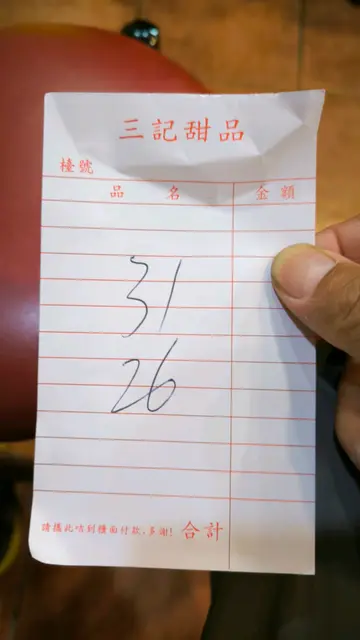 三記甜品
檯號
品 名 金 額
31
26
請攜此咭到櫃面付款、多謝! 合計